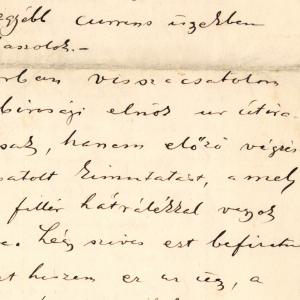 egyébb currens ügyekben
aszolok.—
ban visszacsatolom
birósági elnök ur útira
sak, hanem előző végzés
satolt kimutatást, a mely
fillér hátralékkal vagyok
e. Légy szives ezt befizetn
t hiszem ez az üg, a